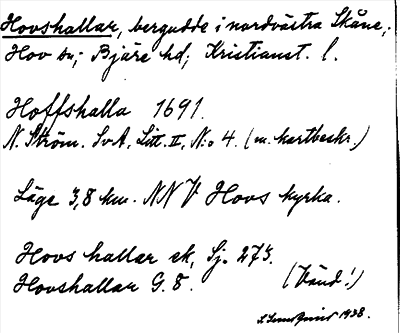 Hovshallar, bergudde i nordvästra Skåne,
Hov sn, Bjäre hd, Kristianst. l.
Hoffshalla 1691.
N. Ström. SvA, Litt. II, N:o 4. (m. kartbeskr.)
Läge 3,8 km. NNV Hovs kyrka.
Hovs hallar ek, Sj. 273.
Hovshallar G. 8. (Vänd!)
1938.